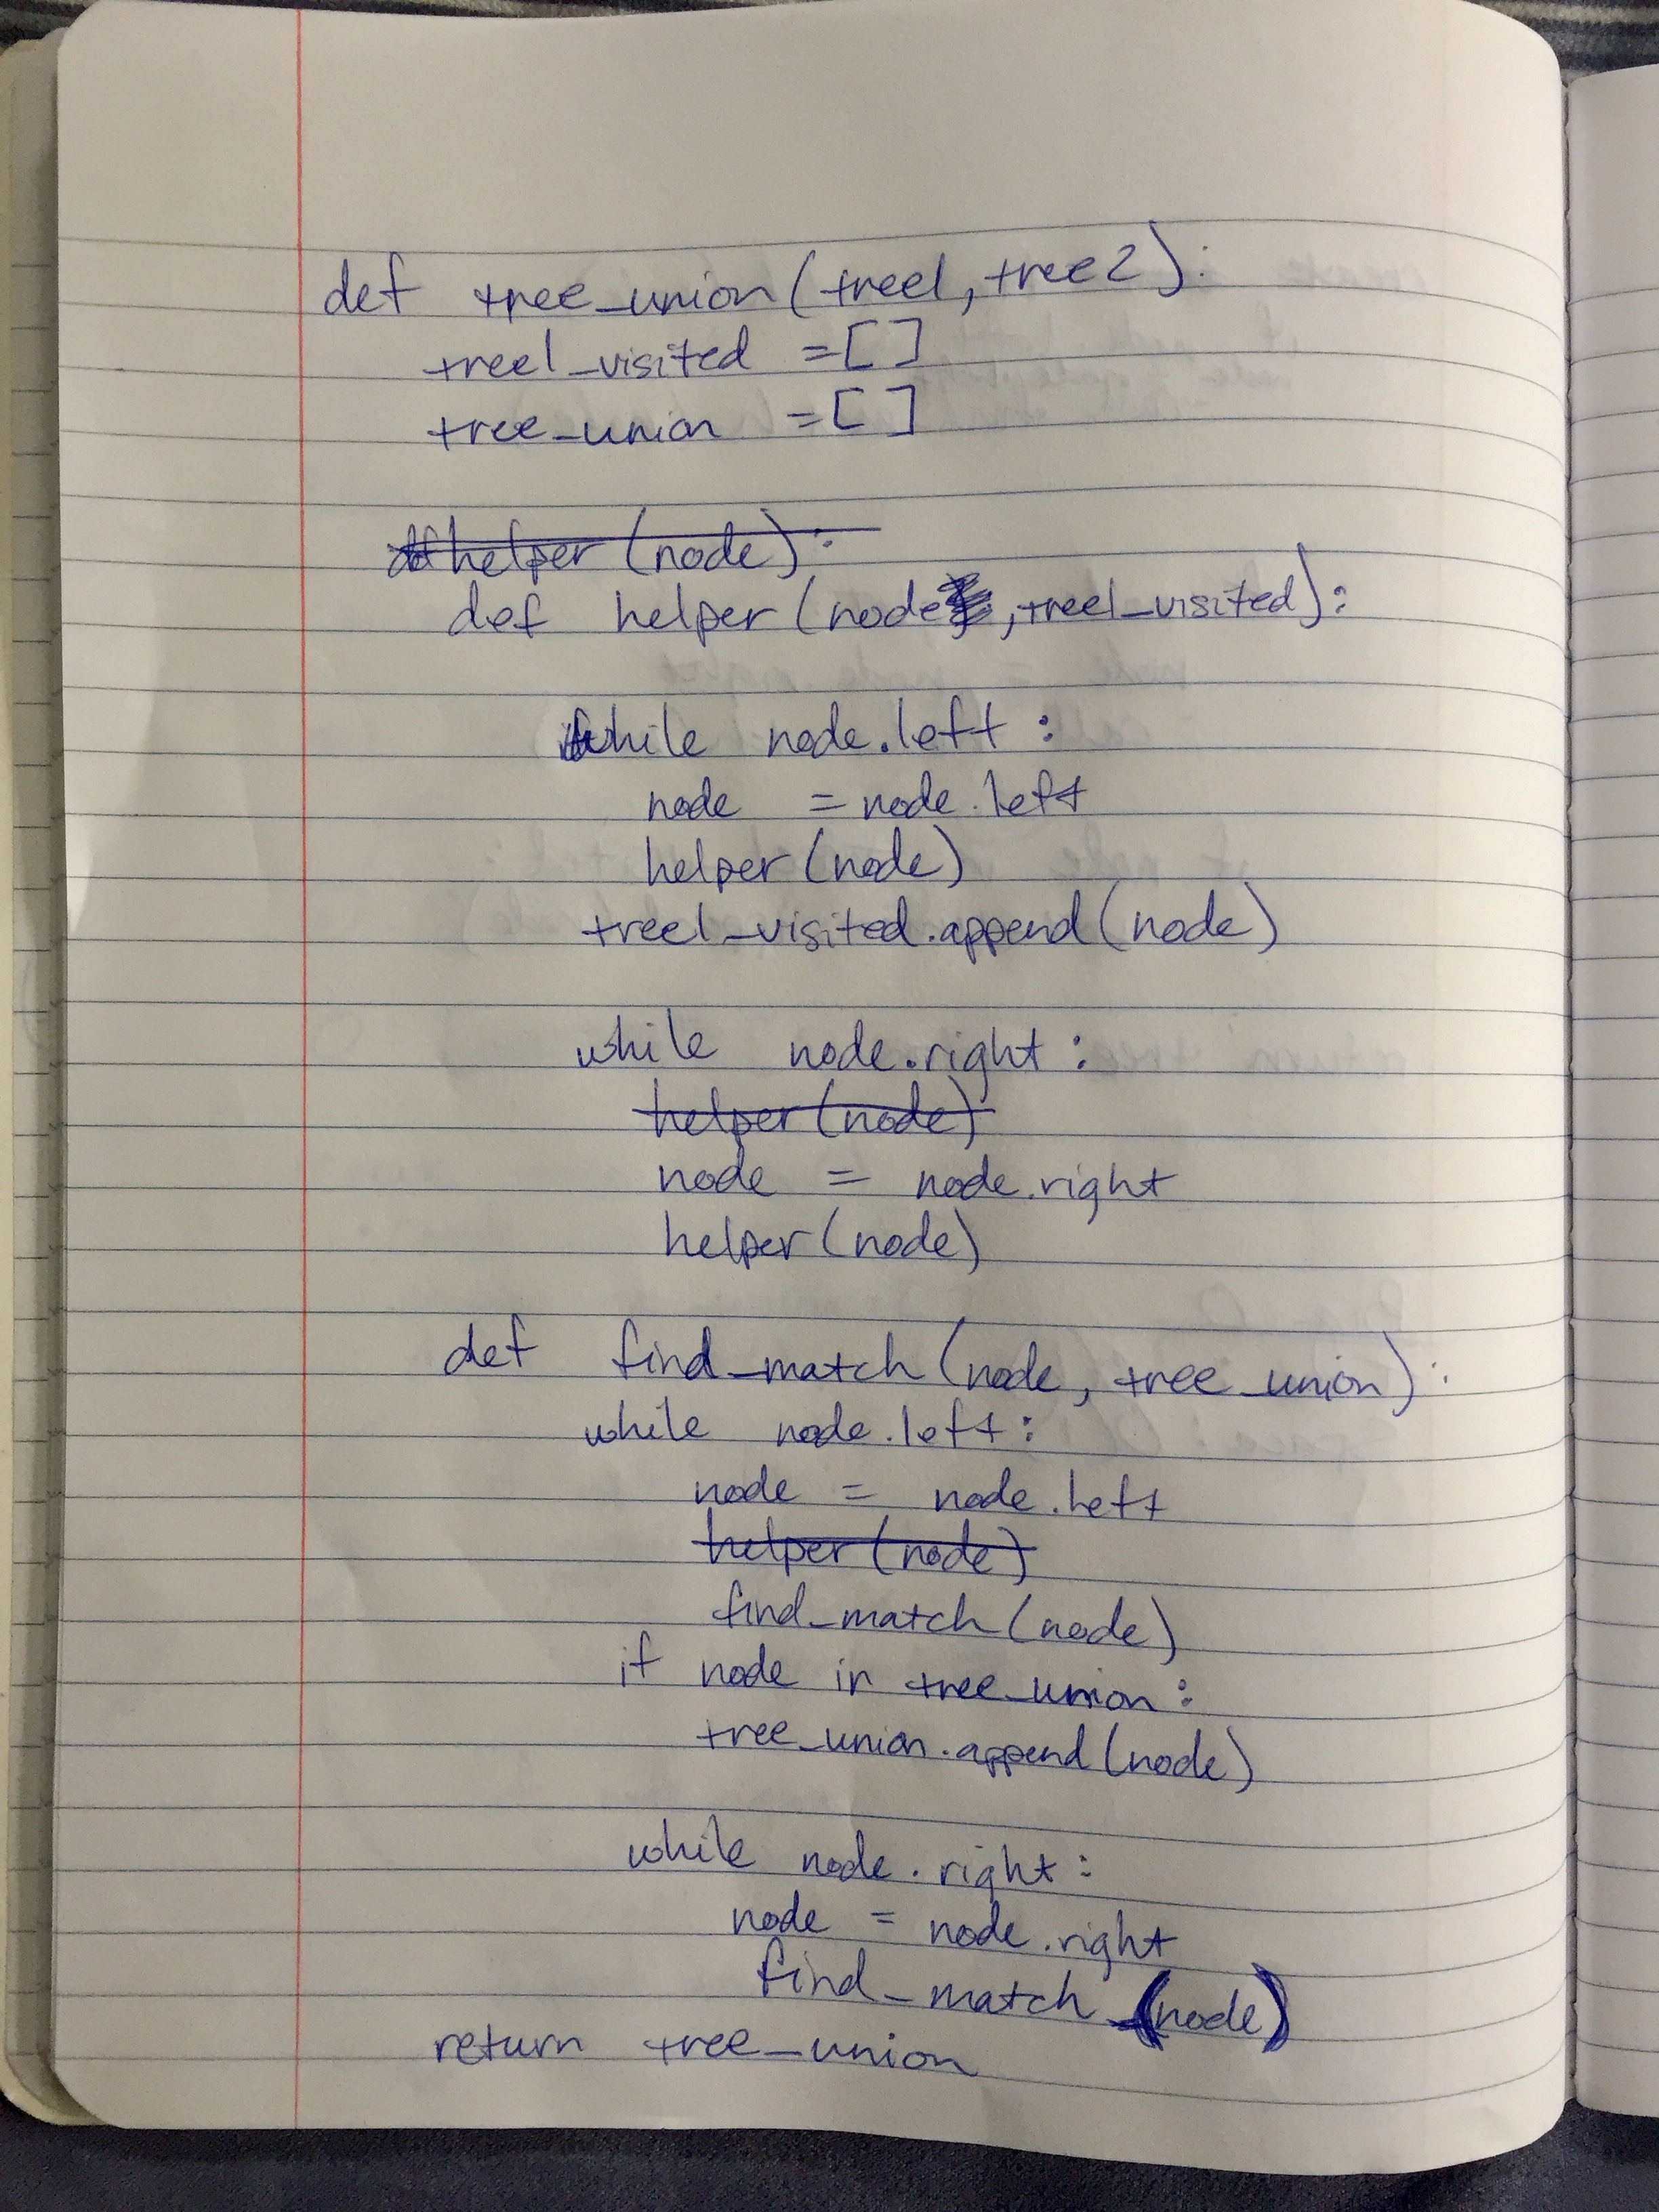 def tree_union(tree1, tree2):
tree1_visited = []
tree_union = []
def helper(node):
def helper(node, tree1_visited):
while node.left:
node = node.left
helper(node)
tree1_visited.append(node)
while node.right:
helper(node)
node = node.right
helper(node)
def find_match(node, tree_union):
while node.left:
node = node.left
helper(node)
find_match(node)
if node in tree_union:
tree_union.append(node)
while node.right:
node = node.right
find_match(node)
return tree_union